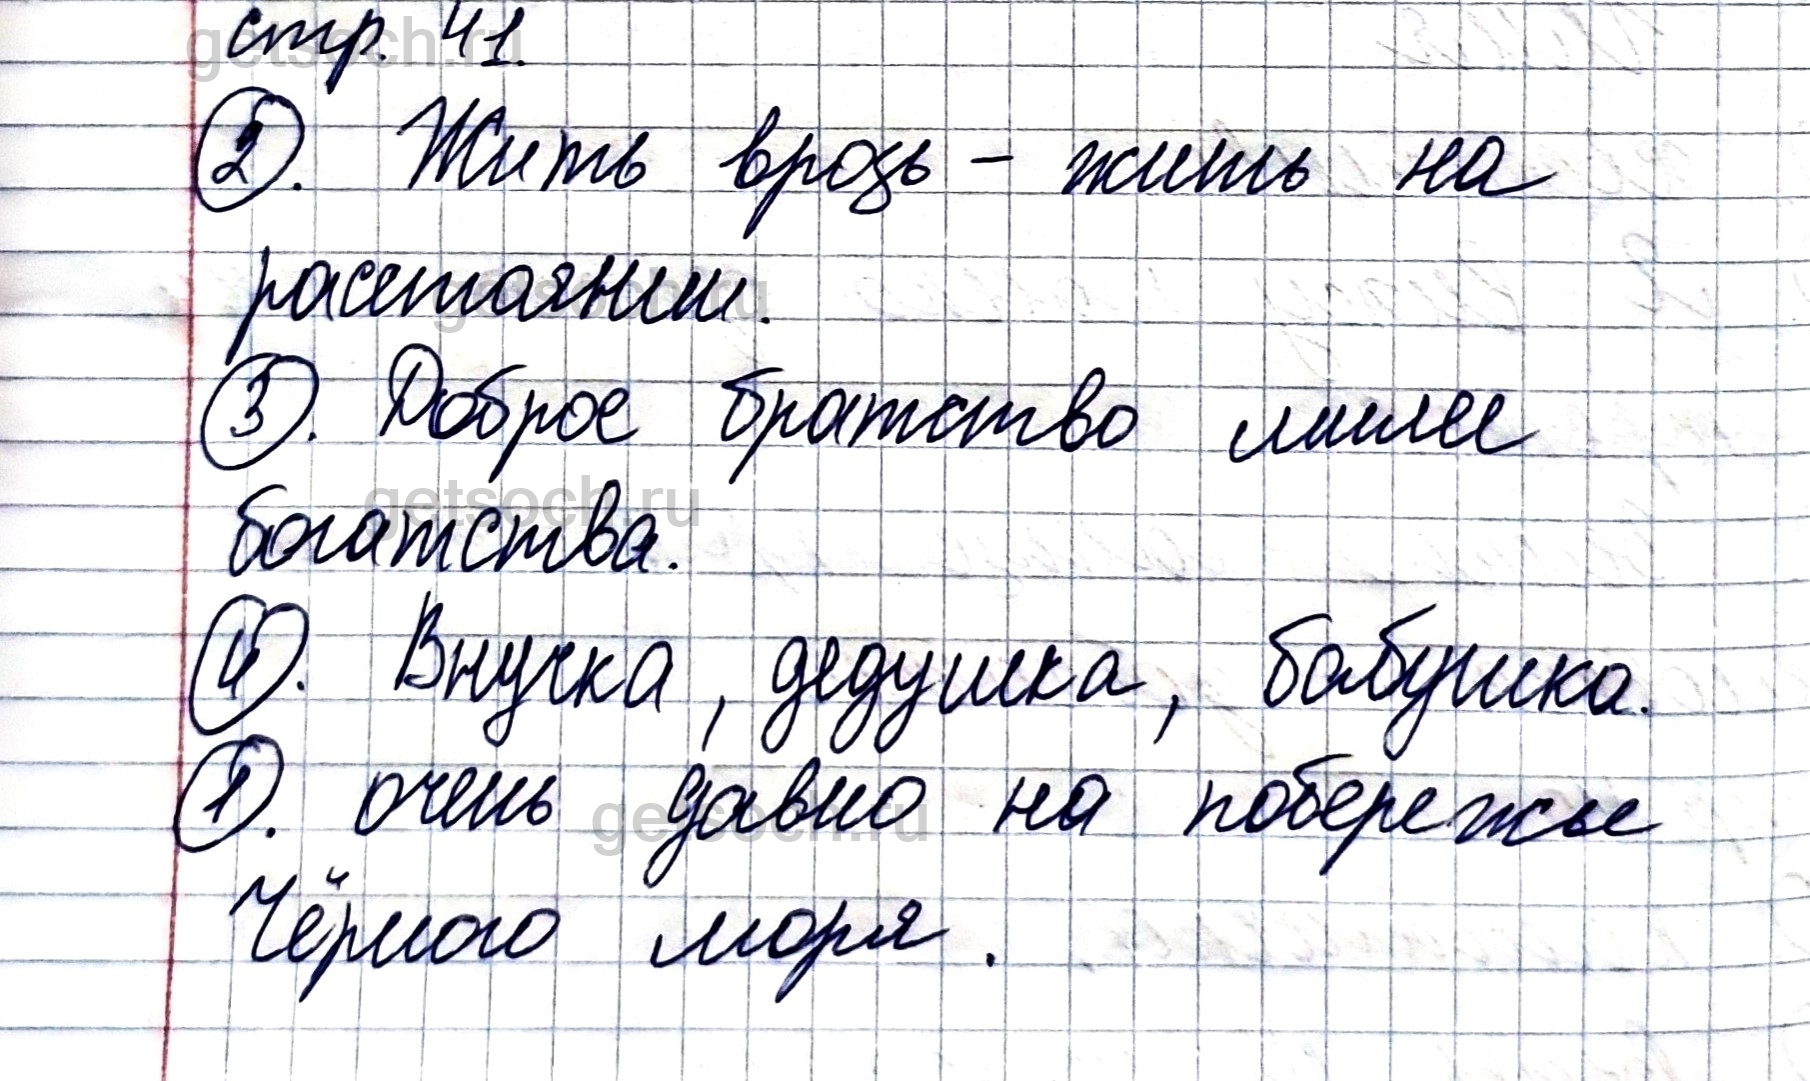 стр. 41.
2. Жить врозь - жить на
расстоянии.
3. Доброе братство милее
богатства.
4. Внучка, дедушка, бабушка.
1. очень давно на побережье
Чёрного моря.
getsoch.ru
getsoch.ru
getsoch.ru
getsoch.ru